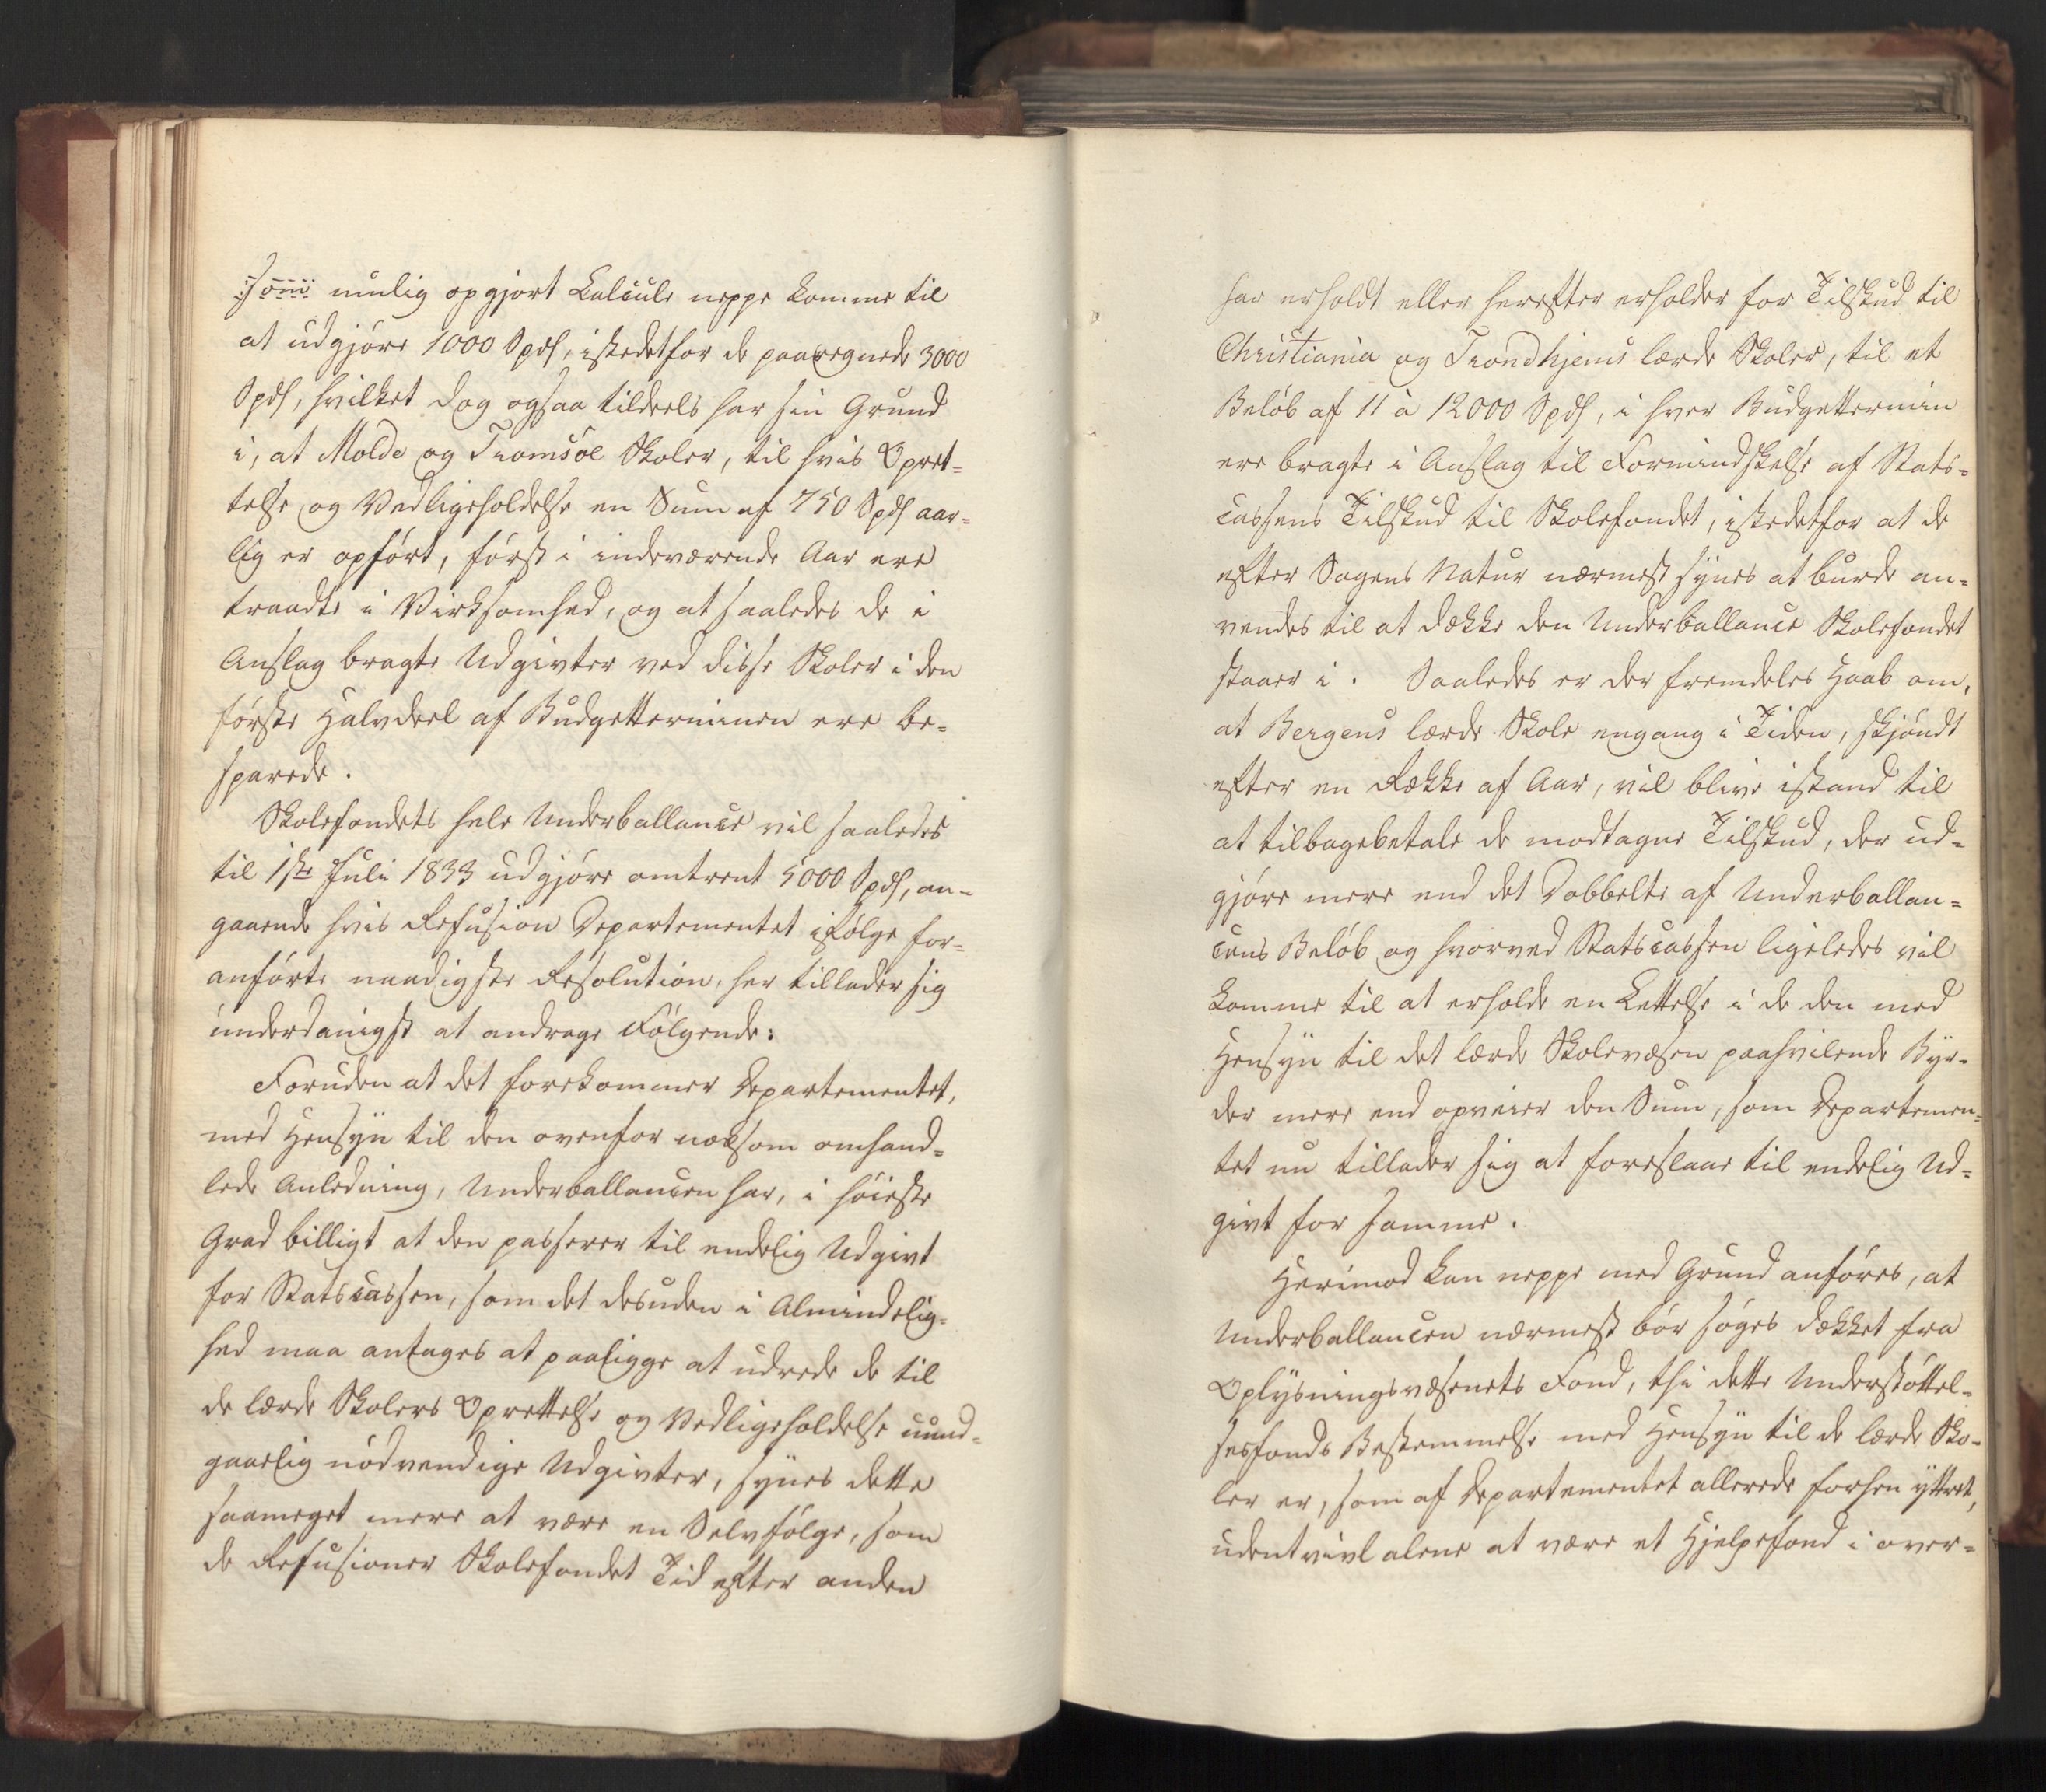 som mulig opgjort Calcule neppe komme til
at udgjøre 1000 Spd, istedetfor de paaregnede 3000
Spd, hvilket dog ogsaa tildeels har sin Grund
i, at Molde og Tromsöe Skoler, til hvis Opret-
telse og Vedligeholdelse en Sum af 750 Spd aar-
lig er opført, først i indeværende Aar ere
traadte i Virksomhed, og at saaledes de i
Anslag bragte Udgivter ved disse Skoler i den
første Halvdeel af Budgetterminen ere be-
sparede.
Skolefondets hele Underballance vil saaledes
til 1ste Juli 1833 udgjøre omtrent 5000 Spd, an-
gaaende hvis Refusion Departementet ifølge for-
anførte naadigste Resolution, her tillader sig
underdanigst at andrage Følgende:
Foruden at det forekommer Departementet,
med Hensyn til den ovenfor noksom omhand-
lede Anledning, Underballancen har, i høieste
Grad billigt at den passerer til endelig Udgivt
for Statscassen, som det desuden i Almindelig-
hed maa antages at paaligge at udrede de til
de lærde Skolers Oprettelse og Vedligeholdelse uund-
gaaelig nødvendige Udgivter, synes dette
saameget mere at være en Selvfølge, som
de Refusioner Skolefondet Tid efter anden
har erholdt eller herefter erholder for Tilskud til
Christiania og Trondhjems lærde Skoler, til et
Beløb af 11 à 12000 Spd, i hver Budgettermin
ere bragte i Anslag til Formindskelse af Stats-
cassens Tilskud til Skolefondet, istedetfor at de
efter Sagens Natur nærmest synes at burde an-
vendes til at dække den Underballance Skolefondet
staaer i. Saaledes er der fremdeles Haab om,
at Bergens lærde Skole engang i Tiden, skjøndt
efter en Række af Aar, vil blive istand til
at tilbagebetale de modtagne Tilskud, der ud-
gjøre mere end det Dobbelte af Underballan-
cens Beløb og hvorved Statscassen ligeledes vil
komme til at erholde en Lettelse i de den med
Hensyn til det lærde Skolevæsen paahvilende Byr-
der mere end opveier den Sum, som Departemen-
tet nu tillader sig at foreslaae til endelig Ud-
givt for samme.
Herimod kan neppe med Grund anføres, at
Underballancen nærmest bør søges dækket fra
Oplysningsvæsenets Fond, thi dette Understøttel-
sesfonds Bestemmelse med Hensyn til de lærde Sko-
ler er, som af Departementet allerede forhen yttret,
udentvivl alene at være et Hjelpefond i over-